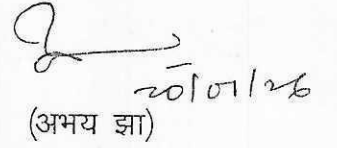 20/01/26
(अभय झा)